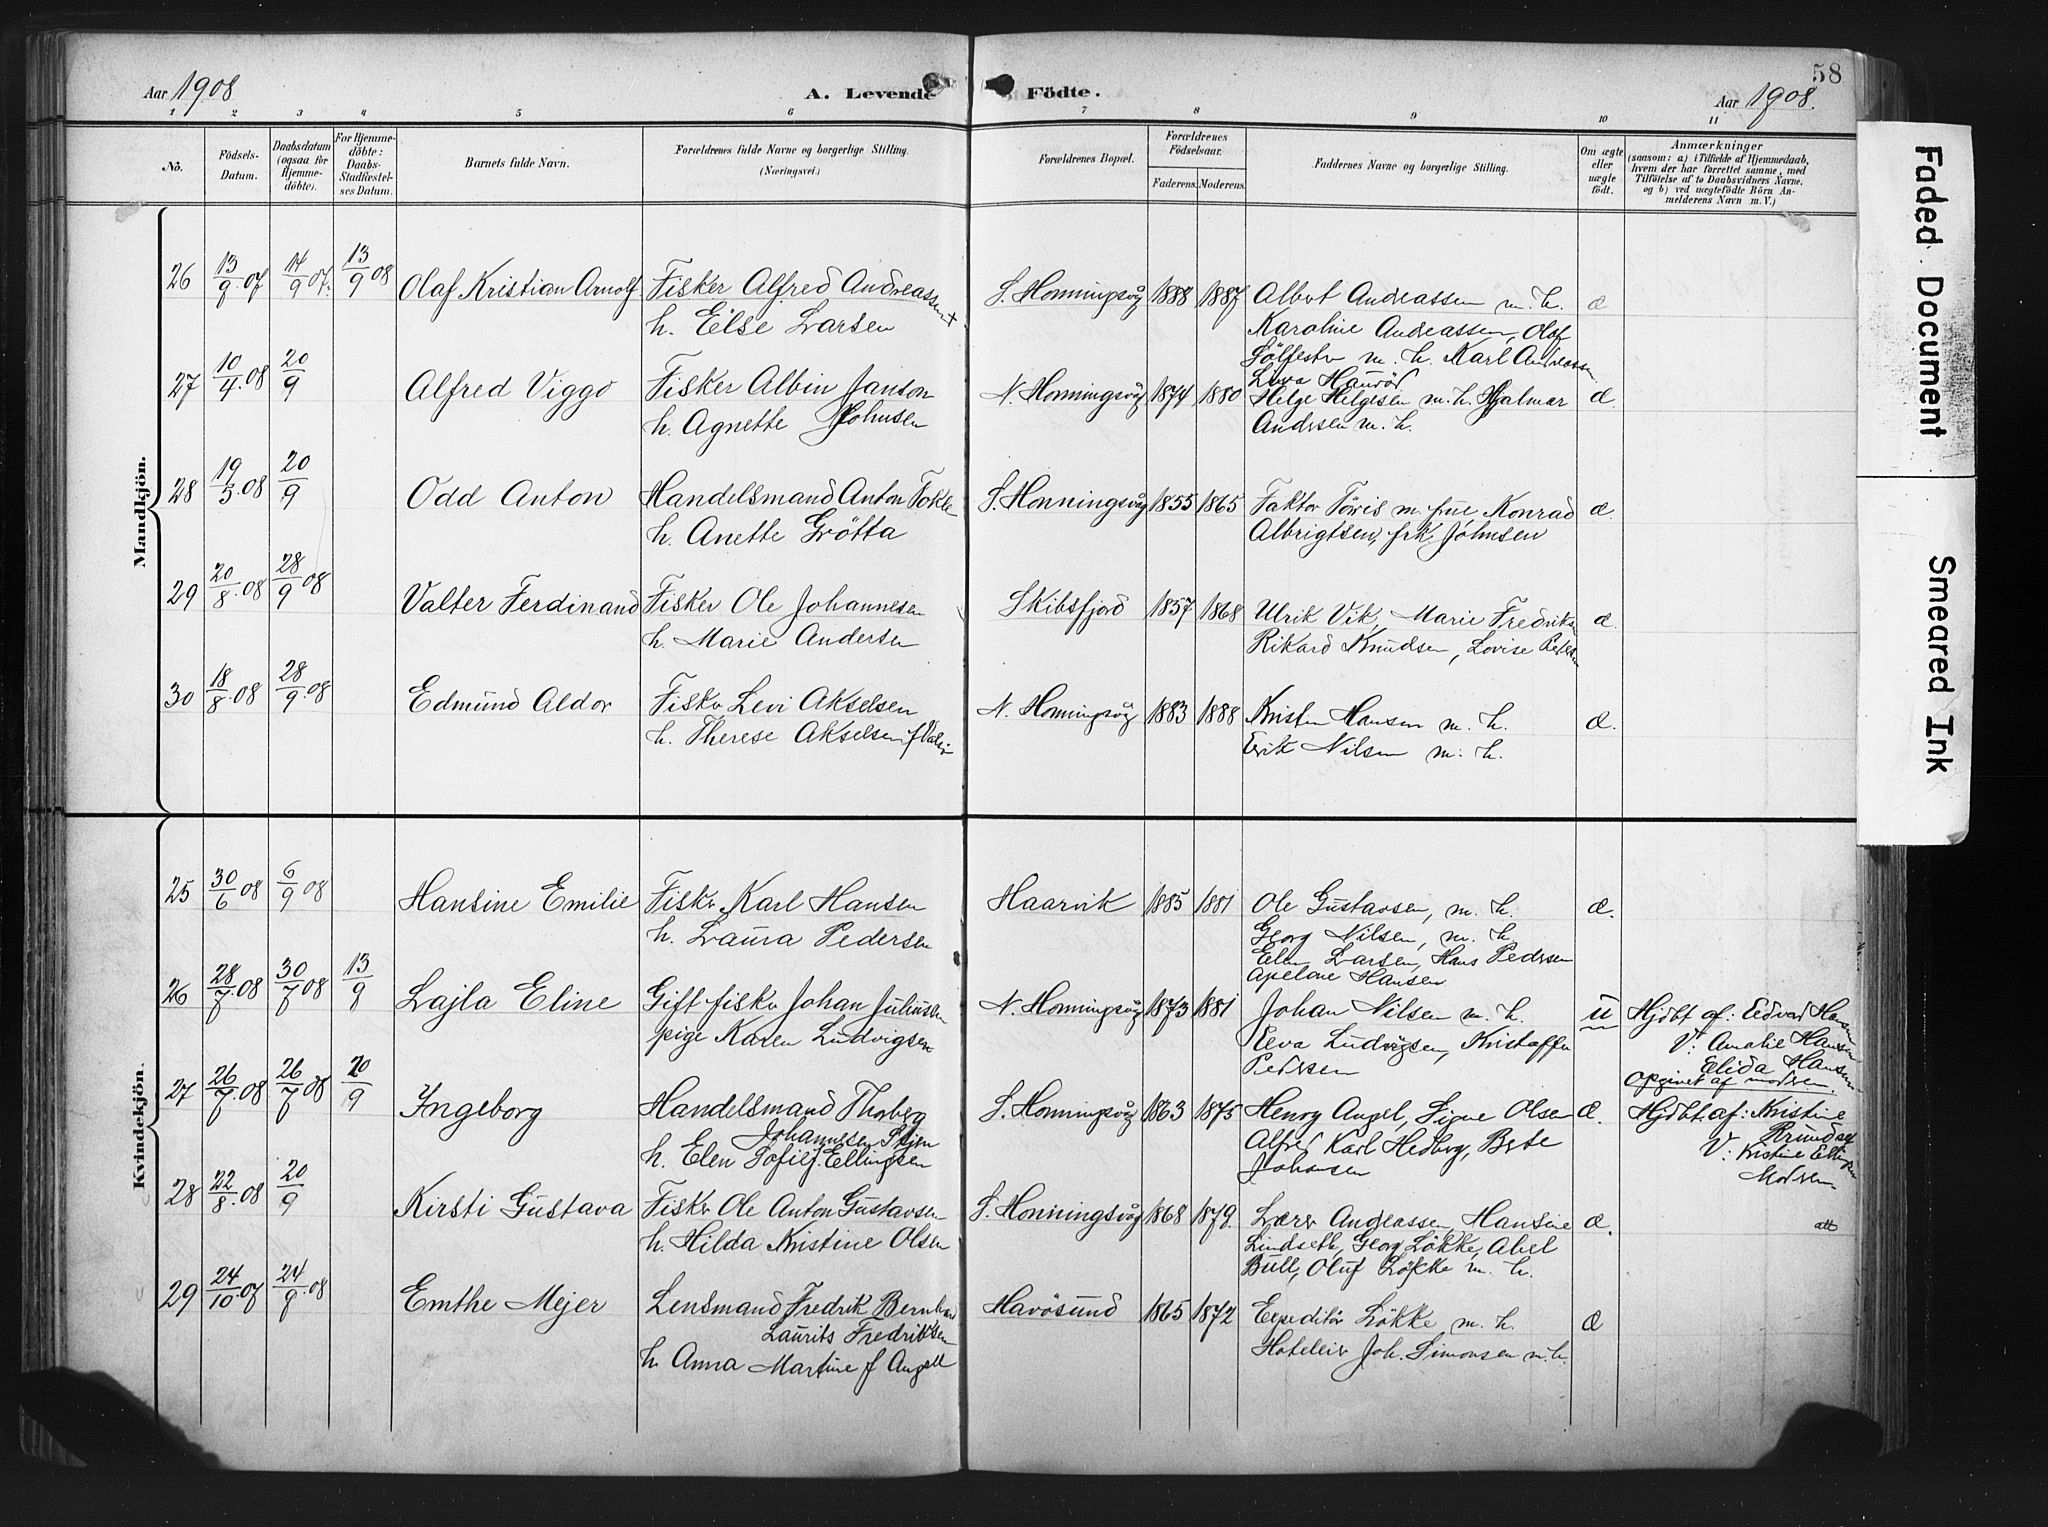 58
Aar 1908
A. Levende Födte.
Aar 1908.
1 2 3 4 5 6 7 8 9 10 11
No.
Födsels-
Datum.
Daabsdatum
(ogsaa for
Hjemme-
döbte).
For Hjemme-
döbte:
Daabs-
Stadfæstel-
ses Datum.
Barnets fulde Navn.
Forældrenes fulde Navne og borgerlige Stilling.
(Næringsvei.)
Forældrenes Bopæl.
Forældrenes
Födselsaar.
Faderens. Moderens.
Faddernes Navne og borgerlige Stilling.
Om ægte
eller
uægte
födt.
Anmærkninger
(saasom: a) i Tilfælde af Hjemmedaab,
hvem der har forrettet samme, med
Tilföielse af to Daabsvidners Navne,
og b) ved uægtefödte Börn An-
melderens Navn m. V.)
Mandkjön.
26 13/9 07 14/9 07. 13/9 08 Olaf Kristian Arnolf Fisker Alfred Andreassen S. Honningsvåg 1888 1887 Albert Andreassen m. h. æ
h. Else Larsen Karoline Andreassen, Olaf
m. h. Karl Andreassen
27 10/4 08 20/9 Alfred Viggo Fisker Albin Janson N. Honningsvåg 1874 1880 Helge Helgesen m. h. Hjalmar æ.
h. Agnette Johnsen Andersen m. h.
28 19/5 08 20/9 Odd Anton Handelsmand Anton Fokle S. Honningsvåg 1855 1865 Faktor Törris m. frue Konrad æ.
h. Anette Grötta Albrigtsen, frk Johnsen
29 20/8 08 28/9 08 Valter Ferdinand Fisker Ole Johannesen Skibsfjord 1857 1868 Ulrik Vik, Marie Fredriksen æ.
h. Marie Andersen Rikard Knudsen, Lovise Petersen
30 18/8 08 28/9 08 Edmund Aldor Fisker Levi Akselsen N. Honningsvåg 1883 1888 Kristen Hansen m. h. æ.
h. Therese Akselsen Erik Nilsen m. h.
Kvindekjön.
25 30/6 08 6/9 08 Hansine Emilie Fisker Karl Hansen Haarvik 1885 1881 Ole Gustavsen, m. h. æ.
h. Laura Pedersen Georg Nilsen, m. h.
Elen Larsen, Hans Pedersen
Apelone Hansen
26 28/7 08 30/7 08 13/9 Lajla Eline Gift fisker Johan Juliussen N. Honningsvåg 1873 1881 Johan Nilsen m. h. u Hjdbt af: Edvard Hansen
pige Karen Ludvigsen Eeva Ludvigsen, Kristoffer V: Amalie Hansen
Pedersen Elida Hansen
opgivet af modren.
27 26/7 08 26/7 08 20/9 Ingeborg Handelsmand Thoberg S. Honningsvåg 1863 1875 Henry Angel, Signe Olsen æ. Hjdbt af: Kristine
Johannessen Stjen Alfred Karl Hedberg, Bete
h. Elen Sofie f. Ellingsen Johansen V: Kristine Ellingsen
Modren
28 22/8 08 20/9 Kirsti Gustava Fisker Ole Anton Gustavsen S. Honningsvåg 1868 1879. Lærer Andreassen, Hansine æ. att
h. Hilda Kristine Olsen Lindseth, Georg Lökke, Abel
Bull, Oluf Lökke m. h.
29 24/10 07 24/8 08 Emthe Mejer Lensmand Fredrik Bernhard Havösund 1865 1872 Expeditör Lökke m. h. æ
Laurits Fredriksen Hoteleier Joh. Simonsen m. h.
h. Anna Martine f Angell
Faded Document
Smeared Ink